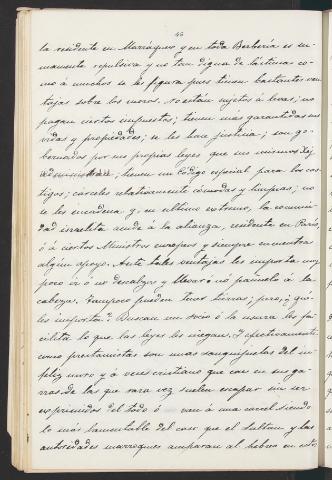 44
la residente en Marráquex y en toda Berbería es su-
mamente repulsiva y no tan digna de lástima co-
mo á muchos se les figura pues tienen bastantes ven-
tajas sobre los moros. No están sujetos á levas; no
pagan ciertos impuestos; tienen más garantidas sus
vidas y propiedades; se les hace justicia; son go-
bernados por sus propias leyes que sus mismos Xej
administra; tienen un Código especial para los cas-
tigos; cárceles relativamente cómodas y limpias; no
se les encadena y, en último extremo, la comuni-
dad israelita acude á la alianza, residente en París,
ó á ciertos Ministros europeos y siempre encuentra
algún apoyo. Ante tales ventajas les importa muy
poco ir ó no descalzos y llevar ó nó pañuelo á la
cabeza. Tampoco pueden tener tierras; pero, ó qué
les importa? Buscan un socio ó la usura les fa-
cilita lo que las leyes les niegan. Y efectivamente
como prestamistas son unas sanguijuelas del in-
feliz moro y á veces cristiano que cae en sus ga-
rras de las que rara vez suelen escapar sin ser
exprimidos del todo ó van á una cárcel siendo
lo más lamentable del caso que el Sultan y las
autoridades marroquíes amparan al hebreo en esta